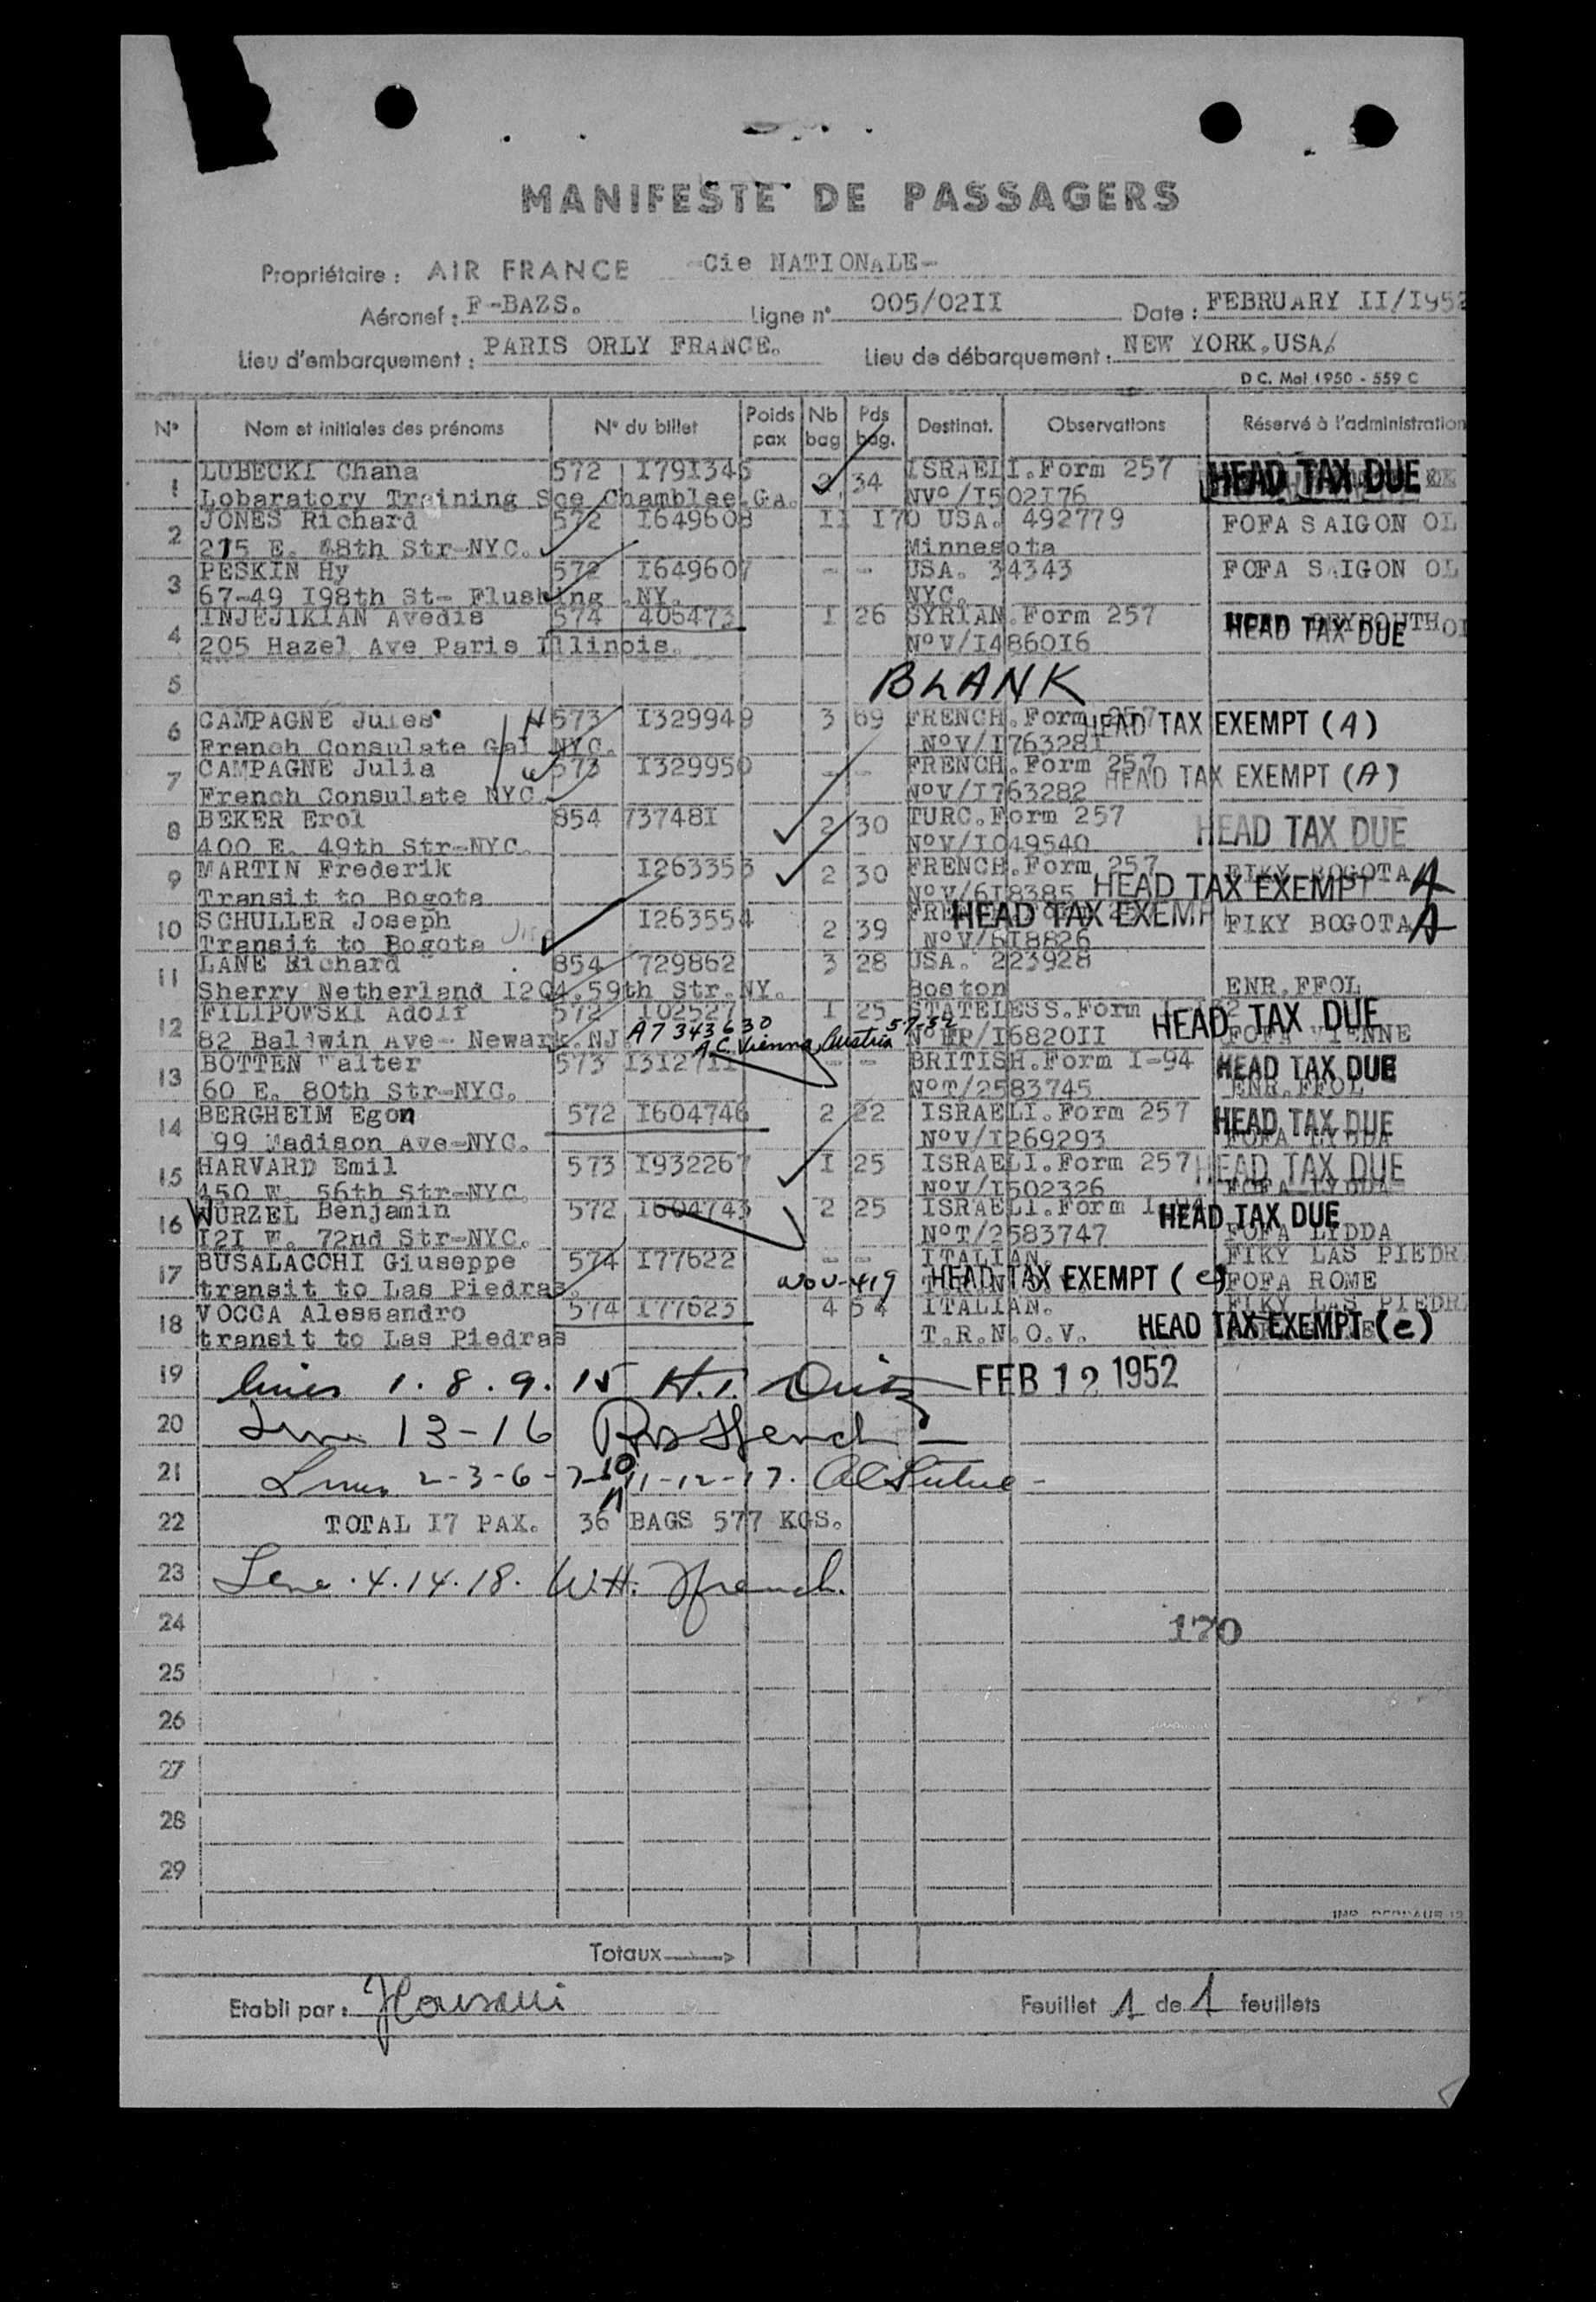 MANIFESTE DE PASSAGERS
Propriétaire : AIR FRANCE -Cie NATIONALE-
Aéronef : F-BAZS. Ligne n° 005/02II Date : FEBRUARY II/I952
Lieu d'embarquement : PARIS ORLY FRANCE. Lieu de débarquement : NEW YORK.USA/
D C. Mai 1950 - 559 C
N° Nom et initiales des prénoms N° du billet Poids pax Nb bag Pds bag. Destinat. Observations Réservé à l'administration
1 LUBECKI Chana 572 I79I346 2 34 ISRAELI.Form 257 HEAD TAX DUE
Lobaratory Training Sce Chamblee.Ga. NV°/I502I76
2 JONES Richard 572 I649608 II I70 USA. 492779 FOFA SAIGON OL
215 E. 48th Str-NYC. Minnesota
3 PESKIN Hy 572 I649607 -- -- USA. 34343 FOFA SAIGON OL
67-49 I98th St- Flushing .NY. NYC.
4 INJEJIKIAN Avedis 574 406473 I 26 SYRIAN.Form 257 HEAD TAX DUE
205 Hazel Ave Paris Illinois. N°V/I486016
5 BLANK
6 CAMPAGNE Jules H 573 I329949 3 69 FRENCH.Form 257 HEAD TAX EXEMPT (A)
French Consulate Gal NYC. N°V/I763281
7 CAMPAGNE Julia W 573 I329950 -- -- FRENCH.Form 257 HEAD TAX EXEMPT (A)
French Consulate NYC. N°V/I763282
8 BEKER Erol 854 73748I 2 30 TURC.Form 257 HEAD TAX DUE
400 E. 49th Str-NYC. N°V/I049540
9 MARTIN Frederik I263353 2 30 FRENCH.Form 257 FIKY BOGOTA A
Transit to Bogota N°V/6I8385 HEAD TAX EXEMPT
10 SCHULLER Joseph I263554 2 39 HEAD TAX EXEMPT FIKY BOGOTA A
Transit to Bogota N°V/6I8826
11 LANE Richard 854 729862 3 28 USA. 223928
Sherry Netherland I204.59th Str.NY. Boston ENR.FFOL
12 FILIPOWSKI Adolf 572 I02527 I 25 STATELESS.Form HEAD TAX DUE
82 Baldwin Ave- Newark.NJ A7343630 A.C. Vienna, Austria N°RP/I6820II FOFA VIENNE
13 BOTTEN Walter 573 I3127II -- -- BRITISH.Form I-94 HEAD TAX DUE
60 E. 80th Str-NYC. N°T/2583745 ENR.FFOL
14 BERGHEIM Egon 572 I604746 2 22 ISRAELI.Form 257 HEAD TAX DUE
99 Madison Ave-NYC. N°V/I269293 FOFA LYDDA
15 HARVARD Emil 573 I932267 I 25 ISRAELI.Form 257 HEAD TAX DUE
450 W. 56th Str-NYC. N°V/I502326 FOFA LYDDA
16 WURZEL Benjamin 572 I604743 2 25 ISRAELI.Form HEAD TAX DUE
I2I W. 72nd Str-NYC. N°T/2583747 FOFA LYDDA
17 BUSALACCHI Giuseppe 574 I77622 -- -- ITALIAN. FIKY LAS PIEDR
transit to Las Piedras. HEAD TAX EXEMPT (e) FOFA ROME
18 VOCCA Alessandro 574 I77623 4 54 ITALIAN. FIKY LAS PIEDR
transit to Las Piedras T.R.N.O.V. HEAD TAX EXEMPT (e)
19 lines 1. 8. 9. 15 H.T. FEB 12 1952
20 Lines 13-16
21 Lines 2-3-6-7-10 11-12-17.
22 TOTAL I7 PAX. 36 BAGS 577 KGS.
23 Line .4.14.18. W.H. French.
24 170
25
26
27
28
29
Totaux
Etabli par : Feuillet 1 de 1 feuillets